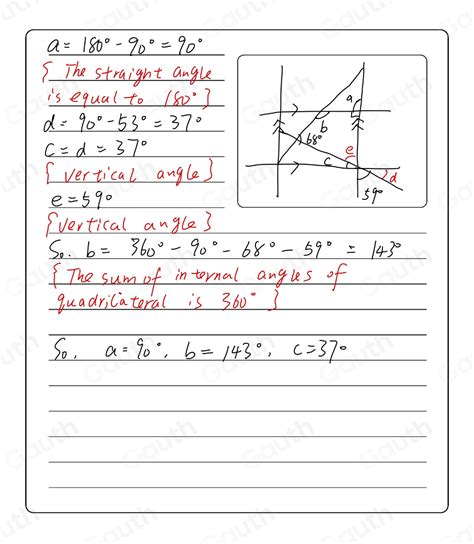 a = 180° - 90° = 90°
{ The straight angle
is equal to 180° }
d = 90° - 53° = 37°
c = d = 37°
{ vertical angle }
e = 59°
{ vertical angle }
So. b = 360° - 90° - 68° - 59° = 143°
{ The sum of internal angles of
quadrilateral is 360° }
So, a = 90°, b = 143°, c = 37°
a
b
68°
e
c
d
59°
Gauth